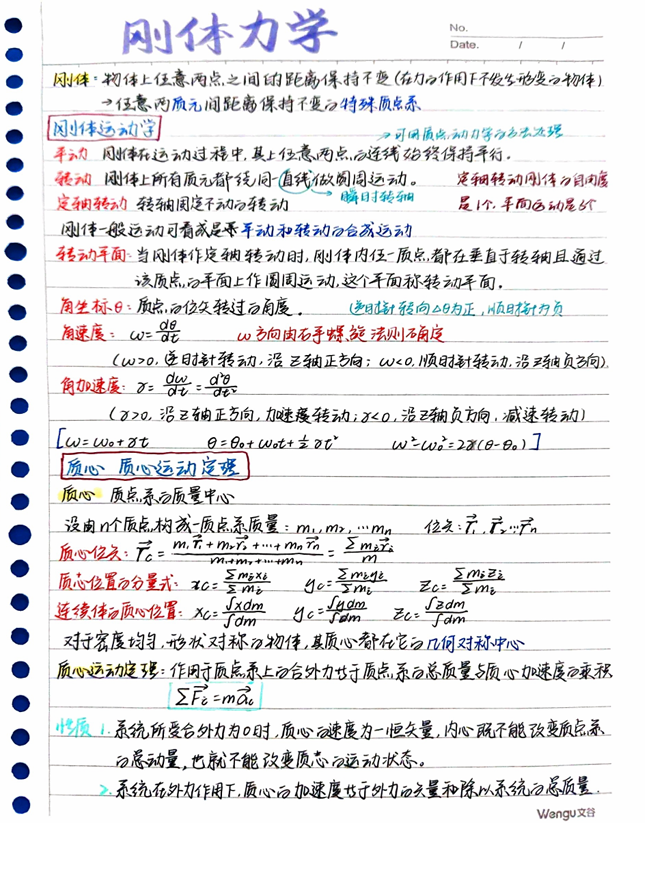 刚体力学
No.
Date. / /
刚体：物体上任意两点之间的距离保持不变(在力的作用下不发生形变的物体)
→任意两质元间距离保持不变的特殊质点系
刚体运动学
→可用质点动力学的方法处理
平动 刚体在运动过程中,其上任意两点的连线始终保持平行.
转动 刚体上所有质元都绕同一直线做圆周运动。 定轴转动刚体的自由度
→瞬时转轴
定轴转动 转轴固定不动的转动 是1个,平面运动是3个
刚体一般运动可看成是平动和转动的合成运动
转动平面：当刚体作定轴转动时,刚体内任一质点都在垂直于转轴且通过
该质点的平面上作圆周运动,这个平面称转动平面.
角坐标θ：质点的位矢转过的角度. 逆时针转向△θ为正,顺时针为负
角速度: ω=dθ/dt ω方向由右手螺旋法则确定
(ω>0,逆时针转动,沿Z轴正方向；ω<0,顺时针转动,沿Z轴负方向)
角加速度: γ=dω/dt=d²θ/dt²
(γ>0,沿Z轴正方向,加速度转动;γ<0,沿Z轴负方向,减速转动)
[ω=ω₀+γt θ=θ₀+ω₀t+½γt² ω²-ω₀²=2γ(θ-θ₀)]
质心 质心运动定理
质心 质点系的质量中心
设由n个质点构成一质点系质量: m₁,m₂,…mₙ 位矢: r⃗₁,r⃗₂…r⃗ₙ
质心位矢: r⃗c=(m₁r⃗₁+m₂r⃗₂+…+mₙr⃗ₙ)/(m₁+m₂+…+mₙ)=∑mᵢr⃗ᵢ/m
质心位置的分量式: xc=∑mᵢxᵢ/∑mᵢ yc=∑mᵢyᵢ/∑mᵢ zc=∑mᵢzᵢ/∑mᵢ
连续体的质心位置: xc=∫xdm/∫dm yc=∫ydm/∫dm zc=∫zdm/∫dm
对于密度均匀,形状对称的物体,其质心都在它的几何对称中心
质心运动定理：作用于质点系上的合外力等于质点系的总质量与质心加速度的乘积
∑F⃗ᵢ=ma⃗c
性质 1.系统所受合外力为0时,质心的速度为一恒矢量,内心既不能改变质点系
的总动量,也就不能改变质心的运动状态。
2.系统在外力作用下,质心的加速度等于外力的矢量和除以系统的总质量.
Wengu文谷